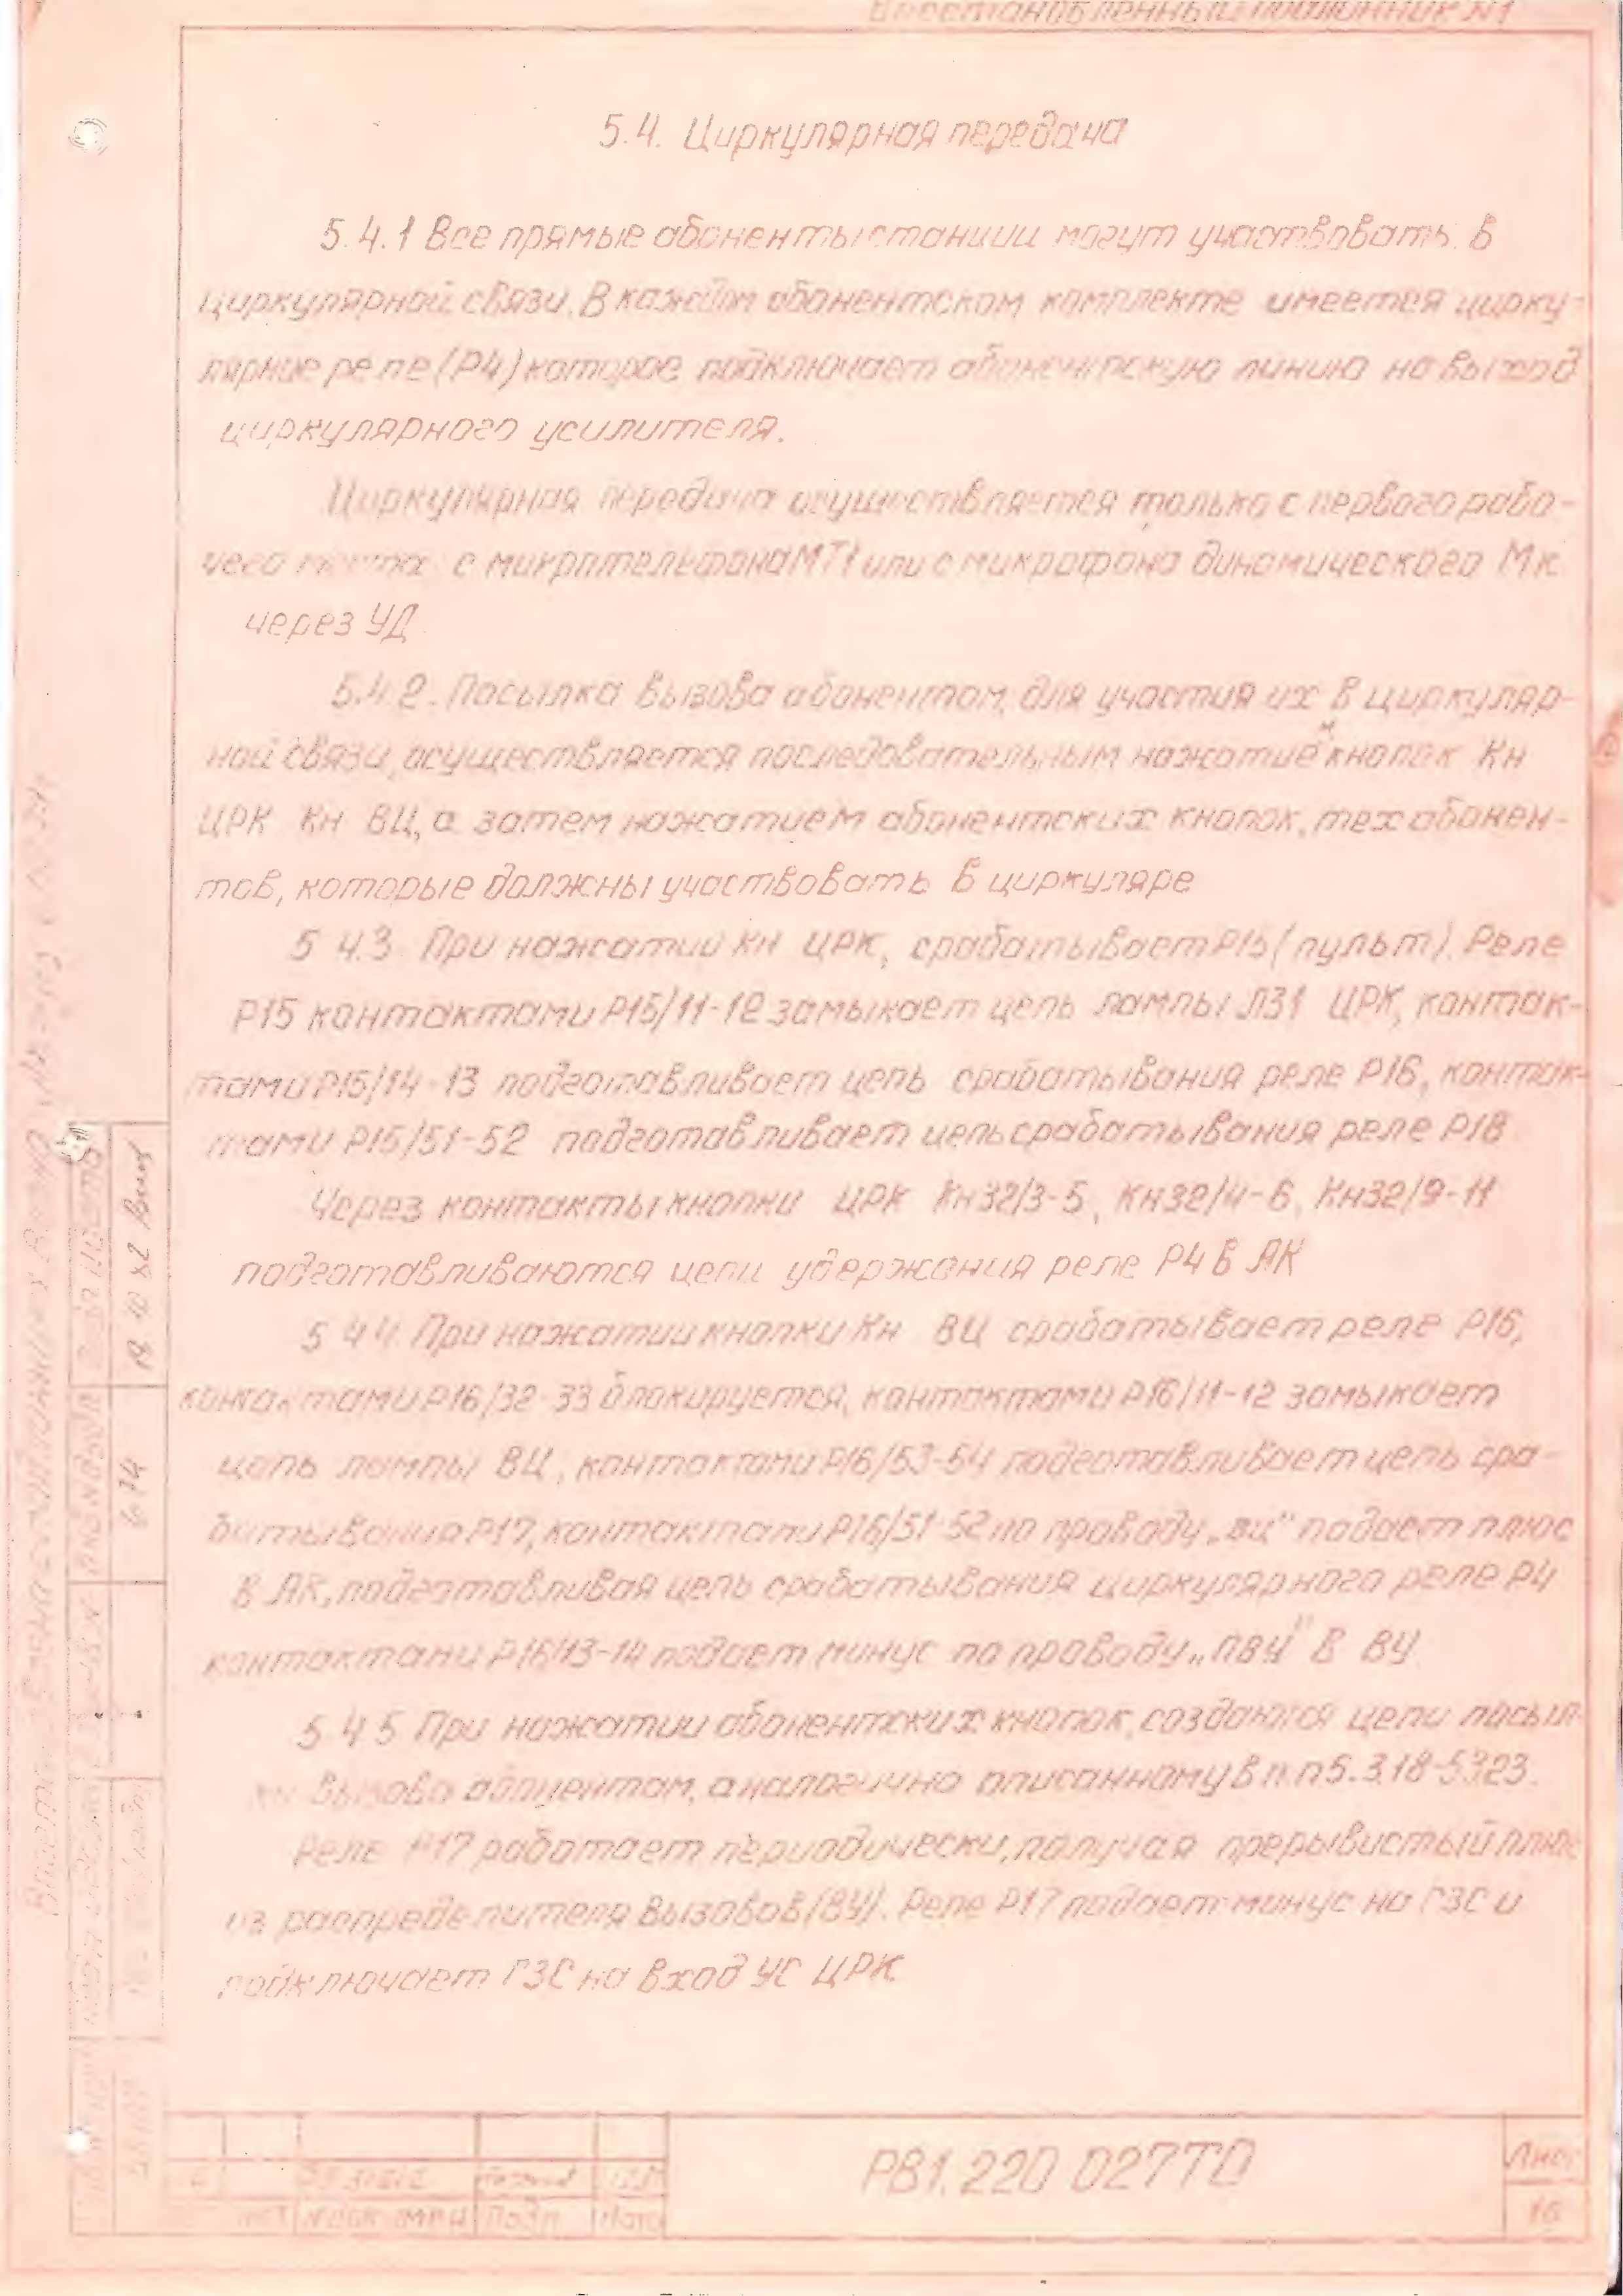 Восстановленный подлинник №1
5.4. Циркулярная передача
5.4.1 Все прямые абоненты станции могут участвовать в
циркулярной связи. В каждом абонентском комплекте имеется цирку-
лярное реле (Р4) которое подключает абонентскую линию на выход
циркулярного усилителя.
Циркулярная передача осуществляется только с первого рабо-
чего места с микротелефона МТ1 или с микрофона динамического Мк
через УД
5.4.2. Посылка вызова абонентам, для участия их в циркуляр-
ной связи, осуществляется последовательным нажатием кнопок Кн
ЦРК Кн ВЦ, а затем нажатием абонентских кнопок, тех абонен-
тов, которые должны участвовать в циркуляре
5 4.3 При нажатии Кн ЦРК, срабатывает Р15 (пульт). Реле
Р15 контактами Р15/11-12 замыкает цепь лампы Л31 ЦРК, контак-
тами Р15/14-13 подготавливает цепь срабатывания реле Р16, контак-
тами Р15/51-52 подготавливает цепь срабатывания реле Р18
Через контакты кнопки ЦРК Кн32/3-5, Кн32/4-6, Кн32/9-11
подготавливаются цепи удержания реле Р4 в АК
5 4 4 При нажатии кнопки Кн ВЦ срабатывает реле Р16,
контактами Р16/32-33 блокируется, контактами Р16/11-12 замыкает
цепь лампы ВЦ, контактами Р16/53-54 подготавливает цепь сра-
батывания Р17, контактами Р16/51-52 по проводу „вц" подает плюс
в АК, подготавливая цепь срабатывания циркулярного реле Р4
контактами Р16/13-14 подает минус по проводу „ПВУ" в ВУ
5 4 5 При нажатии абонентских кнопок, создаются цепи посыл-
ки вызова абонентам, аналогично описанному в п.п 5.3.18-5.3.23.
Реле Р17 работает периодически, получая прерывистый плюс
из распределителя вызовов (ВУ). Реле Р17 подает минус на ГЗС и
подключает ГЗС на вход УС ЦРК
РВ1.220 027ТО
Лист
16
Подп
Дата
674